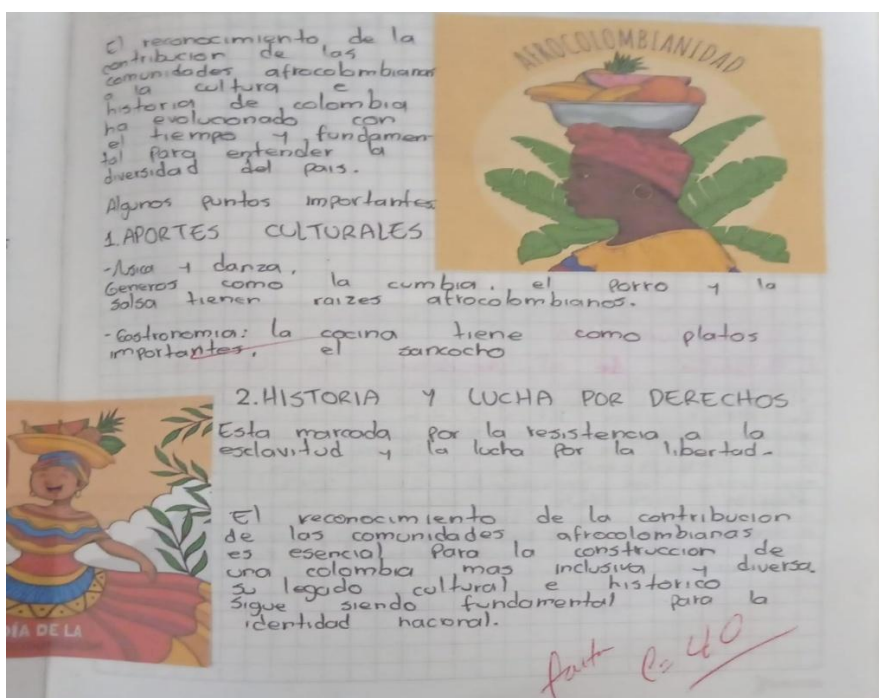 El reconocimiento de la
contribucion de las
comunidades afrocolombianas
a la cultura e
historia de colombia
ha evolucionado con
el tiempo y fundamen
tal para entender la
diversidad del pais.
AFROCOLOMBIANIDAD
Algunos puntos importantes
1. APORTES CULTURALES
y danza.
Generos como la cumbia, el Porro y la
salsa tienen raizes afrocolombianos.
- Gastronomia: la cocina tiene como platos
importantes, el sancocho
2. HISTORIA Y LUCHA POR DERECHOS
Esta marcada por la resistencia a la
esclavitud y la lucha por la libertad.
El reconocimiento de la contribucion
de las comunidades afrocolombianas
es esencial Para la construccion de
una colombia mas inclusiva y diversa.
su legado cultural e historico
sigue siendo fundamental para la
identidad nacional.
DÍA DE LA
40